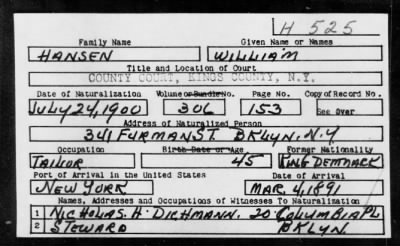 H 525
Family Name Given Name or Names
HANSEN WILLIAM
Title and Location of Court
COUNTY COURT, KINGS COUNTY, N.Y.
Date of Naturalization Volume or Bundle No. Page No. Copy of Record No.
JULY 24, 1900 306 153 See Over
Address of Naturalized Person
341 FURMAN ST BKLYN. N.Y
Occupation Birth Date or Age Former Nationality
TAILOR 45 KING DENMARK
Port of Arrival in the United States Date of Arrival
NEW YORK MAR. 4, 1891
Names, Addresses and Occupations of Witnesses To Naturalization
1 NICHOLAS. H. DICHMANN. 20 COLUMBIA PL
2 STEWARD BKLYN.